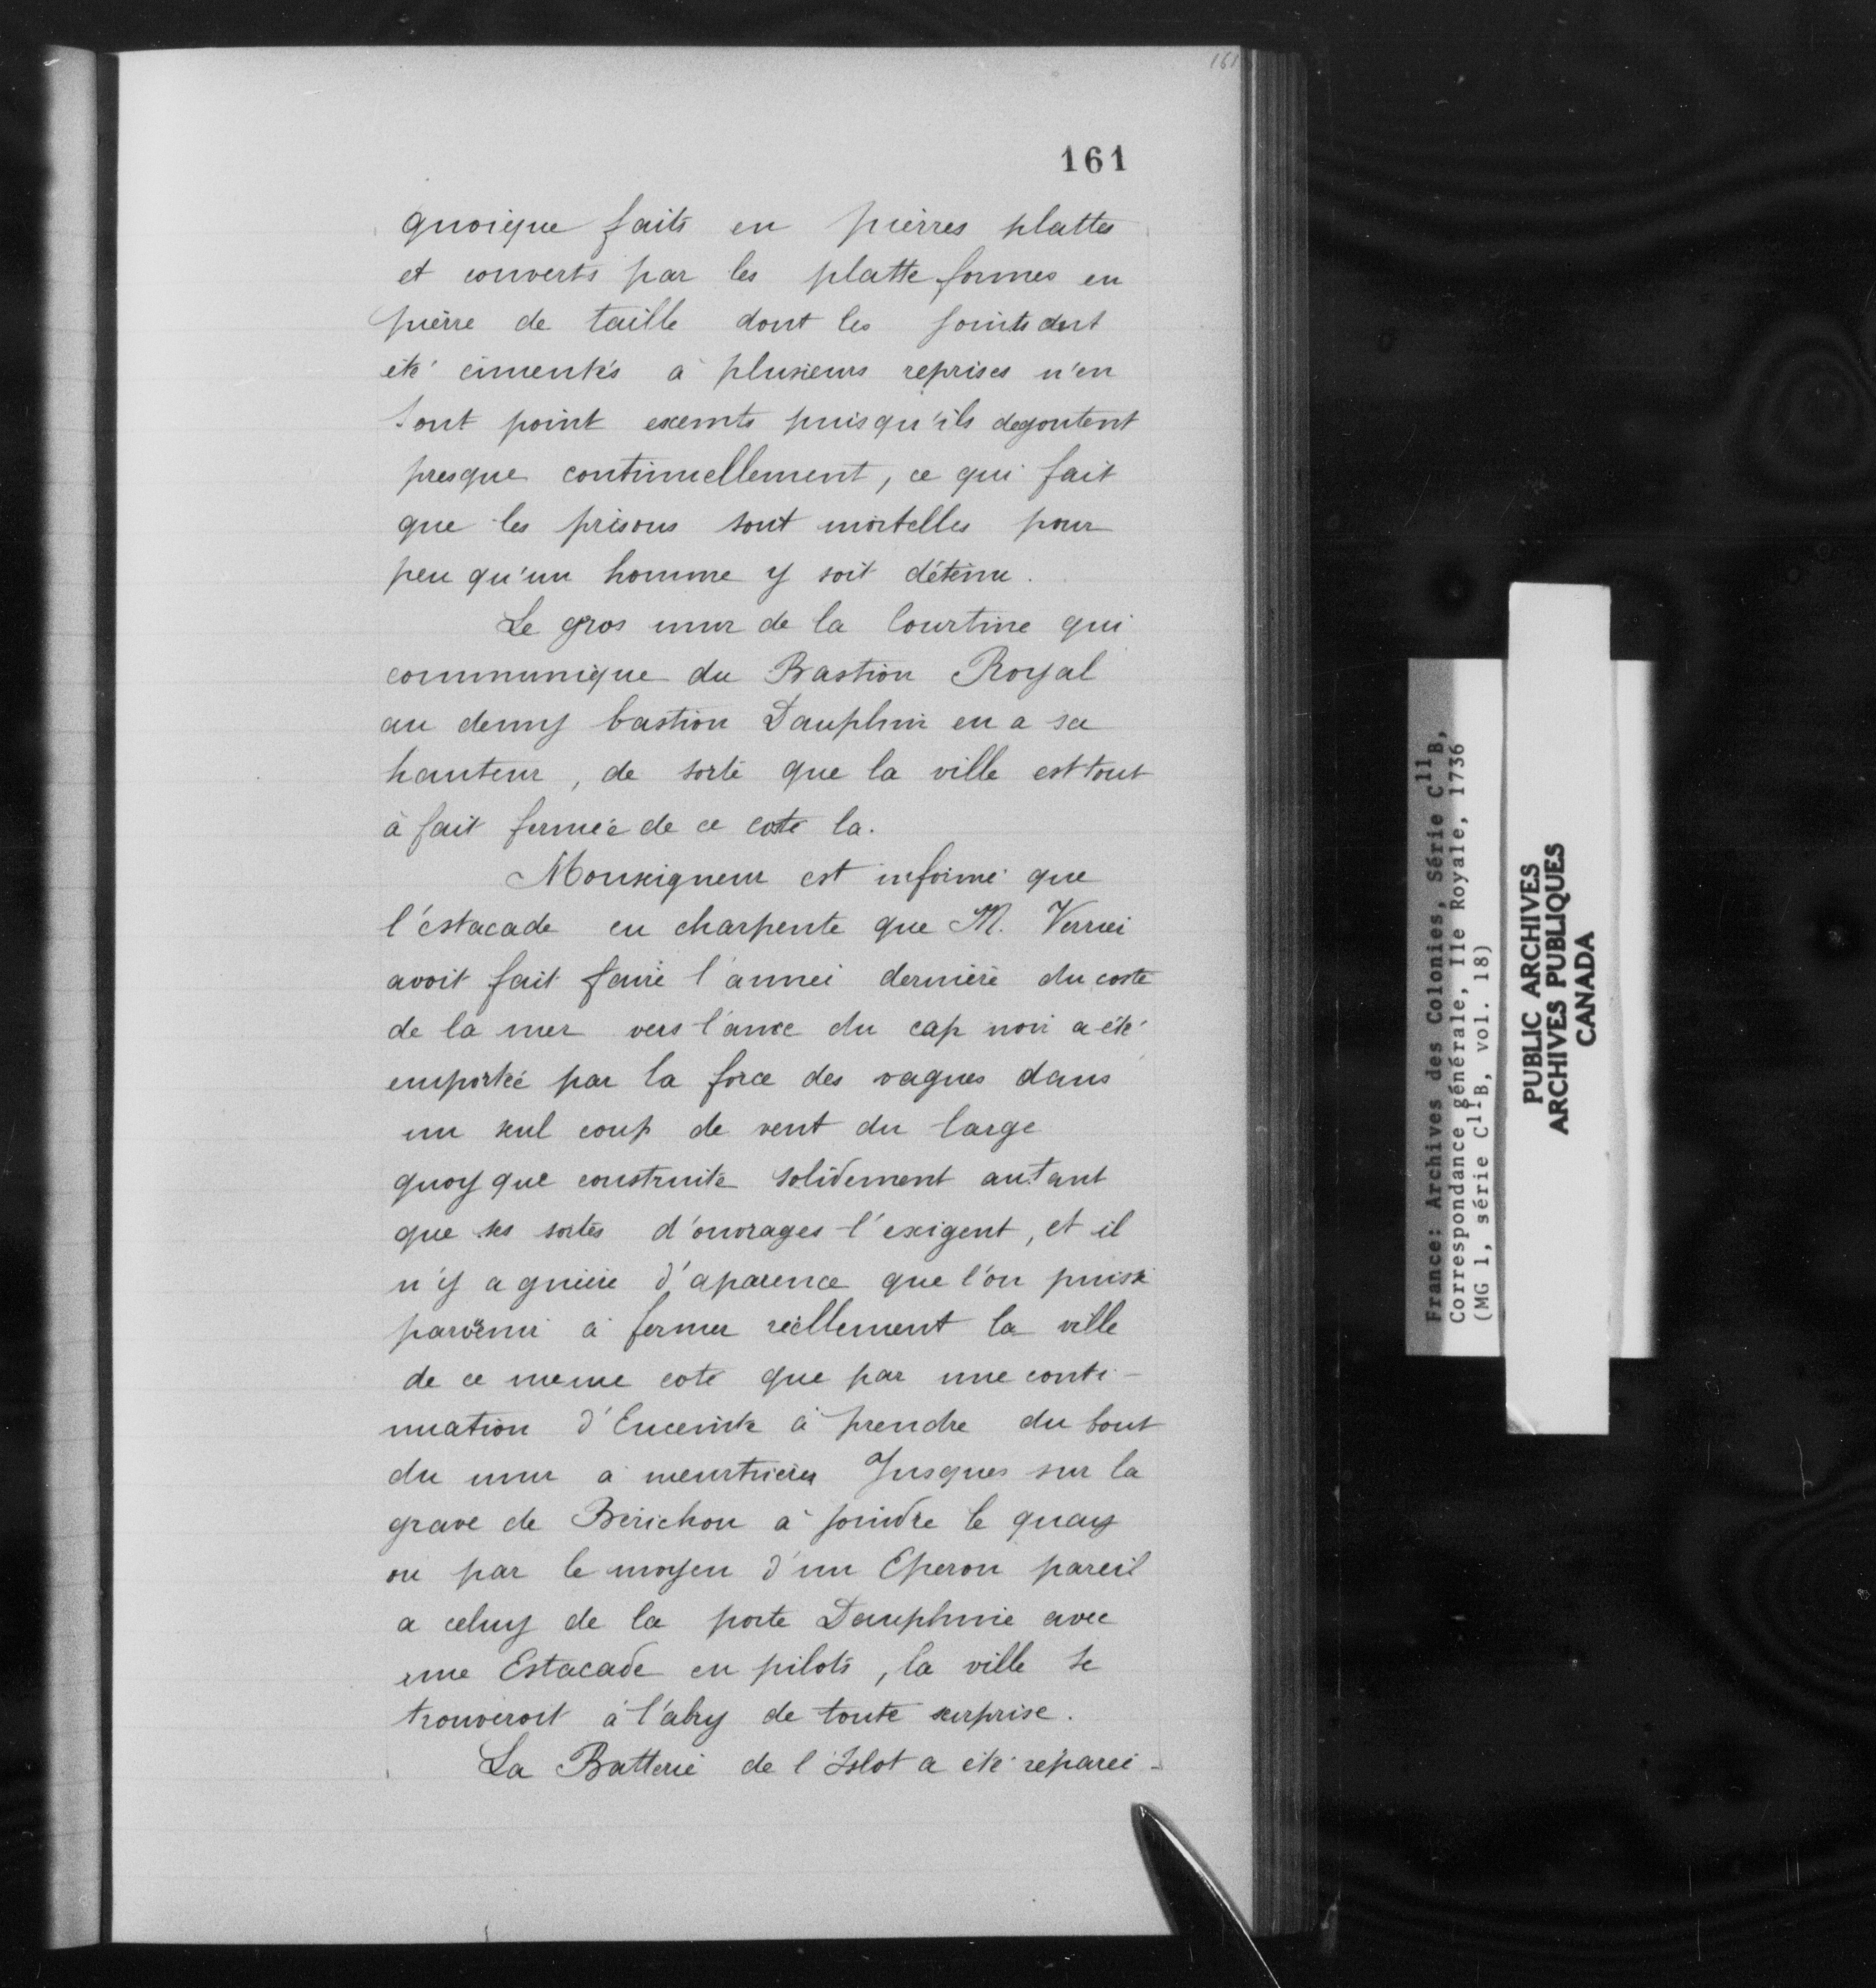 161
161
quoique faits en pierres plattes
et couverts par les platte formes en
pierre de taille dont les joints ont
été cimentés à plusieurs reprises n'en
sont point exemts puisqu'ils degoutent
presque continuellement, ce qui fait
que les prisons sont mortelles pour
peu qu'un homme y soit détenu.
Le gros mur de la Courtine qui
communique du Bastion Royal
au demy bastion Dauphin en a sa
hauteur, de sorte que la ville est tout
à fait fermée de ce coté la.
Monseigneur est informé que
l'éstacade en charpente que M. Verrier
avoit fait faire l'année derniere du costé
de la mer vers l'anse du cap noir a été
emportée par la force des vagues dans
un seul coup de vent du large
quoy que construite solidement autant
que ses sortes d'ouvrages l'exigent, et il
n'y a guiere d'aparence que l'on puisse
parvenir à fermer réellement la ville
de ce meme coté que par une conti-
nuation d'Enceinte à prendre du bout
du mur à meurtrieres Jusques sur la
grave de Berichon à joindre le quay
ou par le moyen d'un Eperon pareil
a celuy de la porte Dauphine avec
une Estacade en pilots, la ville se
trouveroit à l'abry de toute surprise.
La Batterie de l'Islot a été réparée -
France: Archives des Colonies, Série C11B,
Correspondance générale, Ile Royale, 1736
(MG 1, série C11B, vol. 18)
PUBLIC ARCHIVES
ARCHIVES PUBLIQUES
CANADA